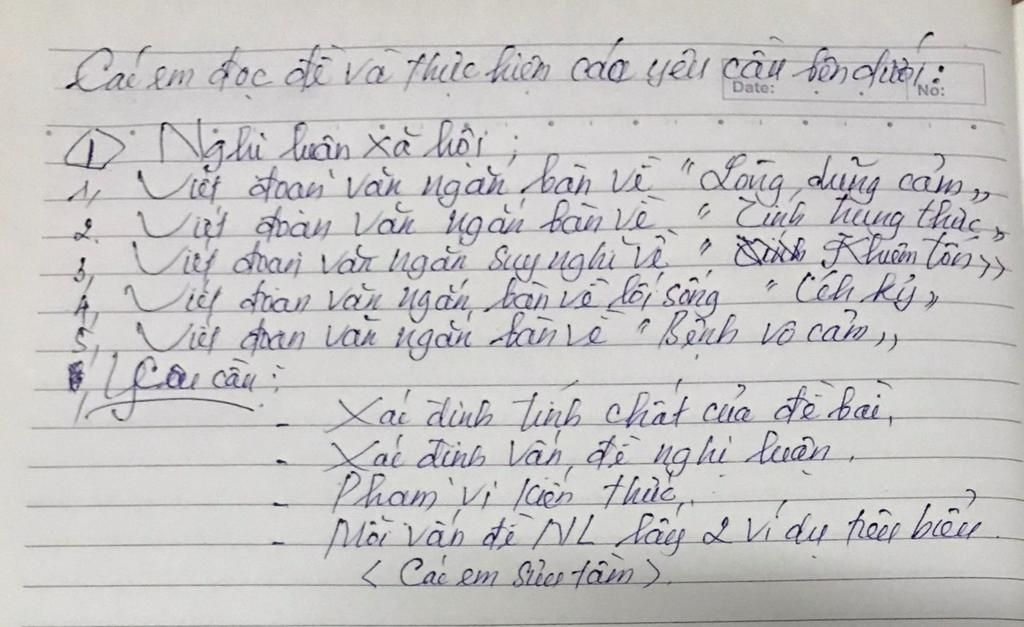 Các em đọc đề và thực hiện các yêu cầu bên dưới:
Date: No:
① Nghị luận xã hội:
1, Viết đoạn văn ngắn bàn về "Lòng dũng cảm"
2. Viết đoạn văn ngắn bàn về "Tính trung thực"
3, Viết đoạn văn ngắn suy nghĩ về "Khiêm tốn"
4, Viết đoạn văn ngắn bàn về lối sống "Ích kỷ"
5, Viết đoạn văn ngắn bàn về "Bệnh vô cảm"
Yêu cầu:
- Xác định tính chất của đề bài.
- Xác định vấn đề nghị luận.
- Phạm vi kiến thức.
- Mỗi vấn đề NL lấy 2 ví dụ tiêu biểu.
< Các em sưu tầm >.